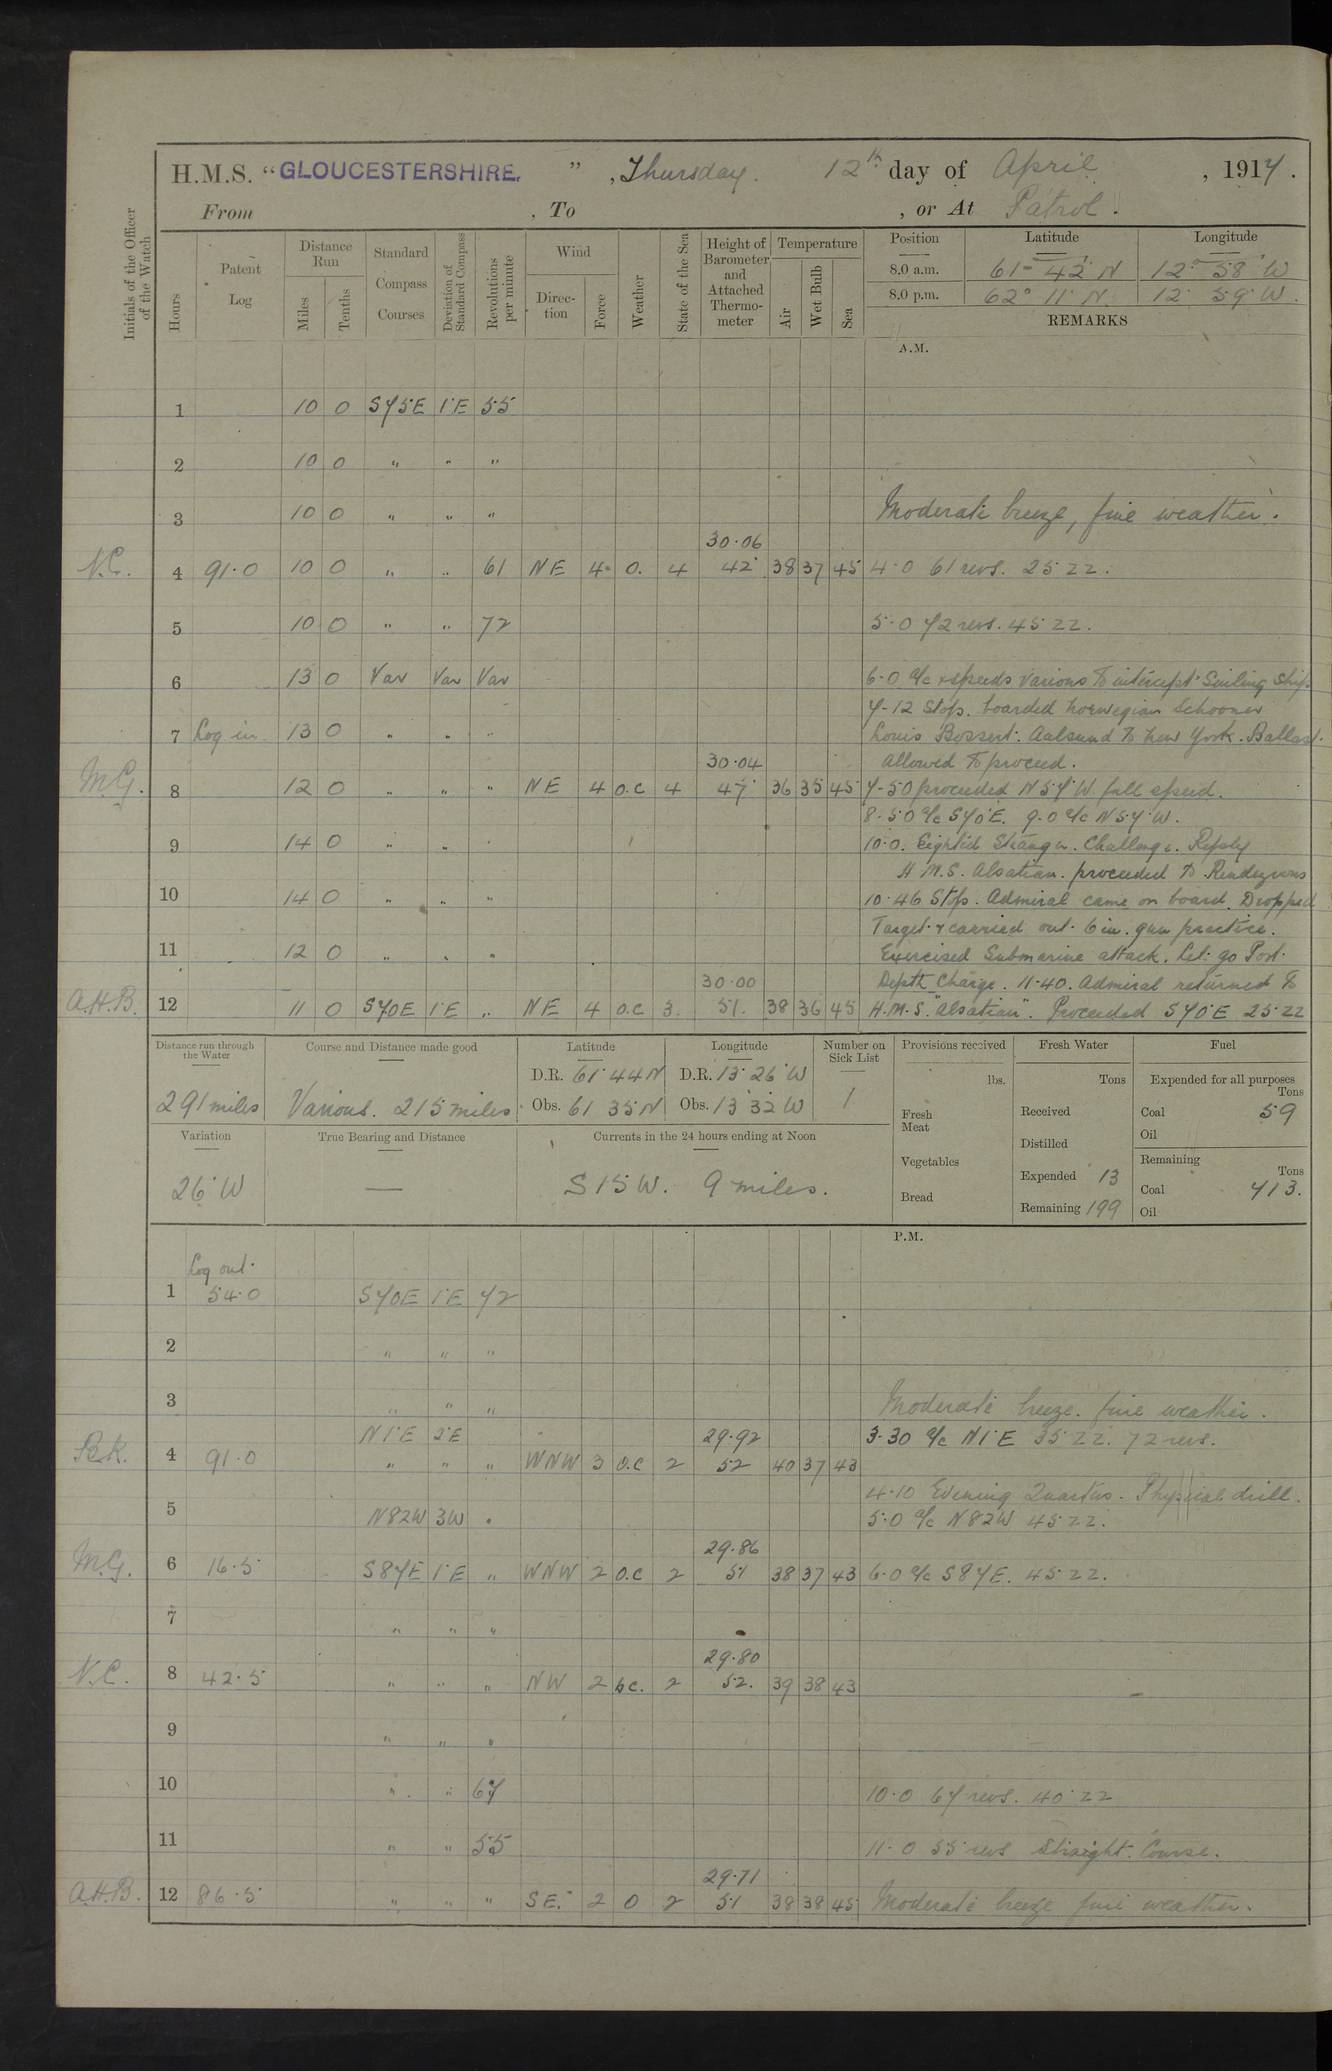 H.M.S. “GLOUCESTERSHIRE.” , Thursday. 12th day of April , 1917.
From , To , or At Patrol.
Initials of the Officer of the Watch
Hours
Patent Log
Distance Run
Miles
Tenths
Standard Compass Courses
Deviation of Standard Compass
Revolutions per minute
Wind
Direction
Force
Weather
State of the Sea
Height of Barometer and Attached Thermometer
Temperature
Air
Wet Bulb
Sea
Position Latitude Longitude
8.0 a.m. 61° 42' N 12° 58' W
8.0 p.m. 62° 11' N 12° 59' W.
REMARKS
A.M.
1 10 0 S75E 1°E 55
2 10 0 " " "
3 10 0 " " " Moderate breeze, fine weather.
30.06
N.C. 4 91.0 10 0 " " 61 NE 4 O. 4 42 38 37 45 4.0 61 revs. 25 ZZ.
5 10 0 " " 72 5.0 72 revs. 45 ZZ.
6 13 0 Var Var Var 6-0 a/c & speeds various to intercept Sailing Ship
7-12 Stop. boarded Norwegian Schooner
7 Log in 13 0 " " " Louis Bossert: Aalsund to New York. Ballast.
30.04 allowed to proceed.
M.G. 8 12 0 " " " NE 4 O.C 4 47 36 35 45 7-50 proceeded N57°W. full speed.
8.50 a/c S70°E. 9.0 a/c N57°W.
9 14 0 " " " 10.0. Sighted Stranger. Challenge. Reply
H.M.S. Alsatian. proceeded to Rendezvous
10 14 0 " " " 10.46 Stop. Admiral came on board. Dropped
Target & carried out 6 in. gun practice.
11 12 0 " " " Exercised Submarine attack. Let go Port
30.00 Depth Charge. 11.40. Admiral returned to
A.H.B. 12 11 0 S70E 1°E " NE 4 O.C 3. 51. 38 36 45 H.M.S. "Alsatian". Proceeded S70°E 25 ZZ
Distance run through the Water
291 miles
Course and Distance made good
Various. 215 miles.
Latitude
D.R. 61° 44 N
Obs. 61 35 N
Longitude
D.R. 13° 26' W
Obs. 13 32 W
Number on Sick List
1
Provisions received
lbs.
Fresh Meat
Vegetables
Bread
Fresh Water
Tons
Received
Distilled
Expended 13
Remaining 199
Fuel
Expended for all purposes
Tons
Coal 59
Oil
Remaining
Tons
Coal 713.
Oil
Variation
26°W
True Bearing and Distance
—
Currents in the 24 hours ending at Noon
S 15 W. 9 miles.
P.M.
Log out.
1 54.0 S70E 1°E 72
2 " " "
3 " " " Moderate breeze. fine weather.
N1°E 2°E 29.92 3.30 a/c N1°E 35 ZZ. 72 revs.
4 91.0 " " " WNW 3 O.C 2 52 40 37 43
4.10 Evening Quarters. Physical drill.
5 N82W 3W " 5.0 a/c N82W 45 ZZ.
29.86
M.G. 6 16.5 S87E 1°E " WNW 2 O.C 2 51 38 37 43 6.0 a/c S87E. 45 ZZ.
7 " " "
29.80
N.C. 8 42.5 " " " NW 2 bc. 2 52. 39 38 43
9 " " "
10 " " 67 10.0 67 revs. 40 ZZ
11 " " 55 11.0 55 revs Straight Course.
29.71
A.H.B. 12 86.5 " " " SE. 2 O 2 51 38 38 45 Moderate breeze fine weather.